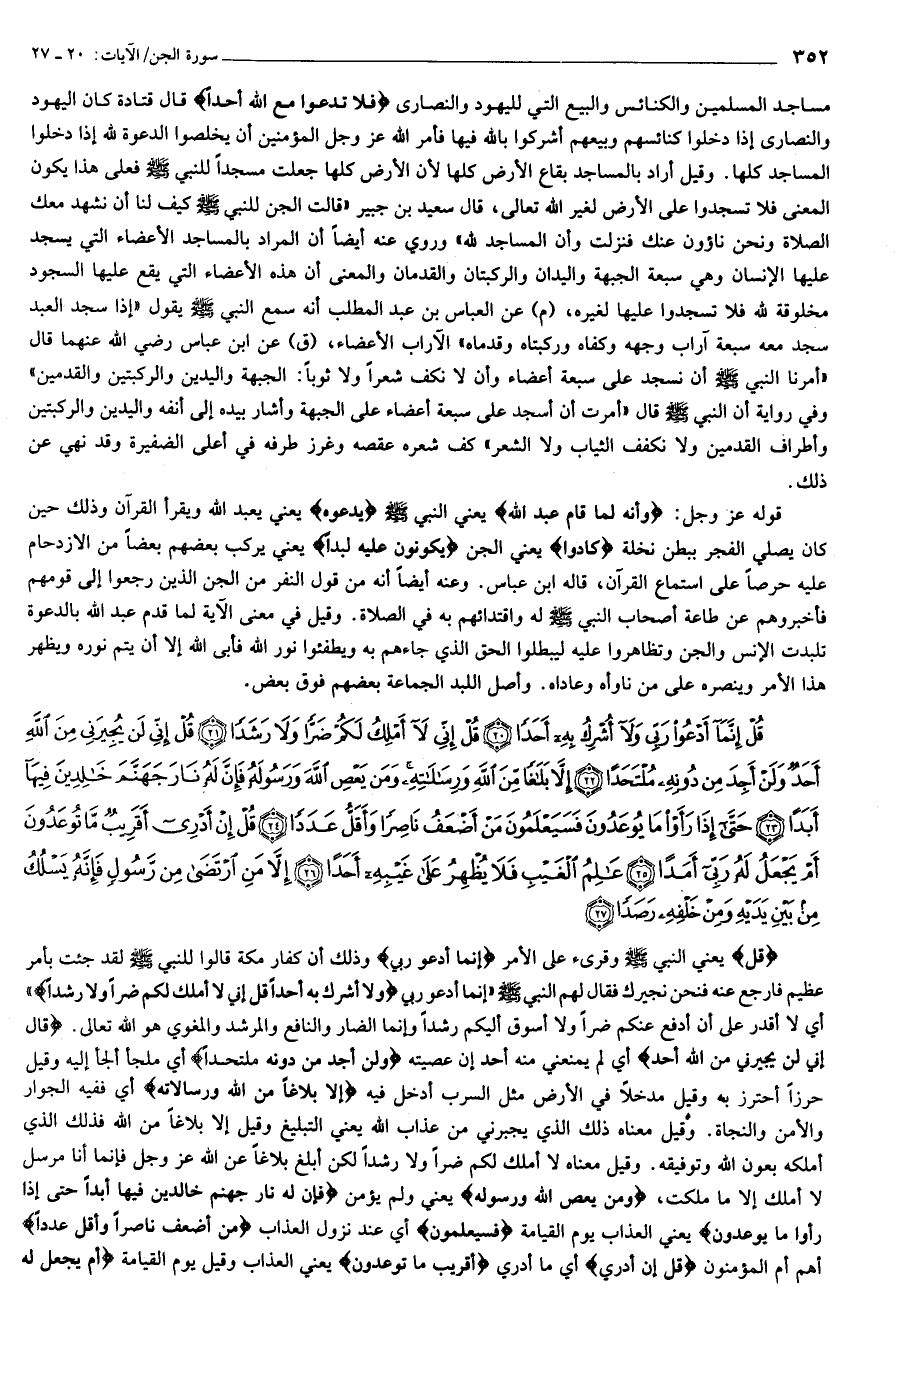 ٣٥٢ سورة الجن/ الآيات: ٢٠ ـ ٢٧
مساجد المسلمين والكنائس والبيع التي لليهود والنصارى ﴿فلا تدعوا مع الله أحداً﴾ قال قتادة كان اليهود
والنصارى إذا دخلوا كنائسهم وبيعهم أشركوا بالله فيها فأمر الله عز وجل المؤمنين أن يخلصوا الدعوة لله إذا دخلوا
المساجد كلها. وقيل أراد بالمساجد بقاع الأرض كلها لأن الأرض كلها جعلت مسجداً للنبي ﷺ فعلى هذا يكون
المعنى فلا تسجدوا على الأرض لغير الله تعالى، قال سعيد بن جبير «قالت الجن للنبي ﷺ كيف لنا أن نشهد معك
الصلاة ونحن ناؤون عنك فنزلت وأن المساجد لله» وروي عنه أيضاً أن المراد بالمساجد الأعضاء التي يسجد
عليها الإنسان وهي سبعة الجبهة واليدان والركبتان والقدمان والمعنى أن هذه الأعضاء التي يقع عليها السجود
مخلوقة لله فلا تسجدوا عليها لغيره، (م) عن العباس بن عبد المطلب أنه سمع النبي ﷺ يقول «إذا سجد العبد
سجد معه سبعة آراب وجهه وكفاه وركبتاه وقدماه» الآراب الأعضاء، (ق) عن ابن عباس رضي الله عنهما قال
«أمرنا النبي ﷺ أن نسجد على سبعة أعضاء وأن لا نكف شعراً ولا ثوباً: الجبهة واليدين والركبتين والقدمين»
وفي رواية أن النبي ﷺ قال «أمرت أن أسجد على سبعة أعضاء على الجبهة وأشار بيده إلى أنفه واليدين والركبتين
وأطراف القدمين ولا نكفف الثياب ولا الشعر» كف شعره عقصه وغرز طرفه في أعلى الضفيرة وقد نهي عن
ذلك.
قوله عز وجل: ﴿وأنه لما قام عبد الله﴾ يعني النبي ﷺ ﴿يدعوه﴾ يعني يعبد الله ويقرأ القرآن وذلك حين
كان يصلي الفجر ببطن نخلة ﴿كادوا﴾ يعني الجن ﴿يكونون عليه لبداً﴾ يعني يركب بعضهم بعضاً من الازدحام
عليه حرصاً على استماع القرآن، قاله ابن عباس. وعنه أيضاً أنه من قول النفر من الجن الذين رجعوا إلى قومهم
فأخبروهم عن طاعة أصحاب النبي ﷺ له واقتدائهم به في الصلاة. وقيل في معنى الآية لما قدم عبد الله بالدعوة
تلبدت الإنس والجن وتظاهروا عليه ليبطلوا الحق الذي جاءهم به ويطفئوا نور الله فأبى الله إلا أن يتم نوره ويظهر
هذا الأمر وينصره على من ناوأه وعاداه. وأصل اللبد الجماعة بعضهم فوق بعض.
قُلْ إِنَّمَآ أَدْعُواْ رَبِّى وَلَآ أُشْرِكُ بِهِۦٓ أَحَدًا ٢٠ قُلْ إِنِّى لَآ أَمْلِكُ لَكُمْ ضَرًّا وَلَا رَشَدًا ٢١ قُلْ إِنِّى لَن يُجِيرَنِى مِنَ ٱللَّهِ
أَحَدٌ وَلَنْ أَجِدَ مِن دُونِهِۦ مُلْتَحَدًا ٢٢ إِلَّا بَلَٰغًا مِّنَ ٱللَّهِ وَرِسَٰلَٰتِهِۦ وَمَن يَعْصِ ٱللَّهَ وَرَسُولَهُۥ فَإِنَّ لَهُۥ نَارَ جَهَنَّمَ خَٰلِدِينَ فِيهَآ
أَبَدًا ٢٣ حَتَّىٰٓ إِذَا رَأَوْاْ مَا يُوعَدُونَ فَسَيَعْلَمُونَ مَنْ أَضْعَفُ نَاصِرًا وَأَقَلُّ عَدَدًا ٢٤ قُلْ إِنْ أَدْرِىٓ أَقَرِيبٌ مَّا تُوعَدُونَ
أَمْ يَجْعَلُ لَهُۥ رَبِّىٓ أَمَدًا ٢٥ عَٰلِمُ ٱلْغَيْبِ فَلَا يُظْهِرُ عَلَىٰ غَيْبِهِۦٓ أَحَدًا ٢٦ إِلَّا مَنِ ٱرْتَضَىٰ مِن رَّسُولٍ فَإِنَّهُۥ يَسْلُكُ
مِنۢ بَيْنِ يَدَيْهِ وَمِنْ خَلْفِهِۦ رَصَدًا ٢٧
﴿قل﴾ يعني النبي ﷺ وقرىء على الأمر ﴿إنما أدعو ربي﴾ وذلك أن كفار مكة قالوا للنبي ﷺ لقد جئت بأمر
عظيم فارجع عنه فنحن نجيرك فقال لهم النبي ﷺ «إنما أدعو ربي ﴿ولا أشرك به أحداً قل إني لا أملك لكم ضراً ولا رشداً﴾»
أي لا أقدر على أن أدفع عنكم ضراً ولا أسوق أليكم رشداً وإنما الضار والنافع والمرشد والمغوي هو الله تعالى. ﴿قال
إني لن يجيرني من الله أحد﴾ أي لم يمنعني منه أحد إن عصيته ﴿ولن أجد من دونه ملتحداً﴾ أي ملجأ ألجأ إليه وقيل
حرزاً أحترز به وقيل مدخلاً في الأرض مثل السرب أدخل فيه ﴿إلا بلاغاً من الله ورسالاته﴾ أي ففيه الجوار
والأمن والنجاة. وقيل معناه ذلك الذي يجبرني من عذاب الله يعني التبليغ وقيل إلا بلاغاً من الله فذلك الذي
أملكه بعون الله وتوفيقه. وقيل معناه لا أملك لكم ضراً ولا رشداً لكن أبلغ بلاغاً عن الله عز وجل فإنما أنا مرسل
لا أملك إلا ما ملكت، ﴿ومن يعص الله ورسوله﴾ يعني ولم يؤمن ﴿فإن له نار جهنم خالدين فيها أبداً حتى إذا
رأوا ما يوعدون﴾ يعني العذاب يوم القيامة ﴿فسيعلمون﴾ أي عند نزول العذاب ﴿من أضعف ناصراً وأقل عدداً﴾
أهم أم المؤمنون ﴿قل إن أدري﴾ أي ما أدري ﴿أقريب ما توعدون﴾ يعني العذاب وقيل يوم القيامة ﴿أم يجعل له